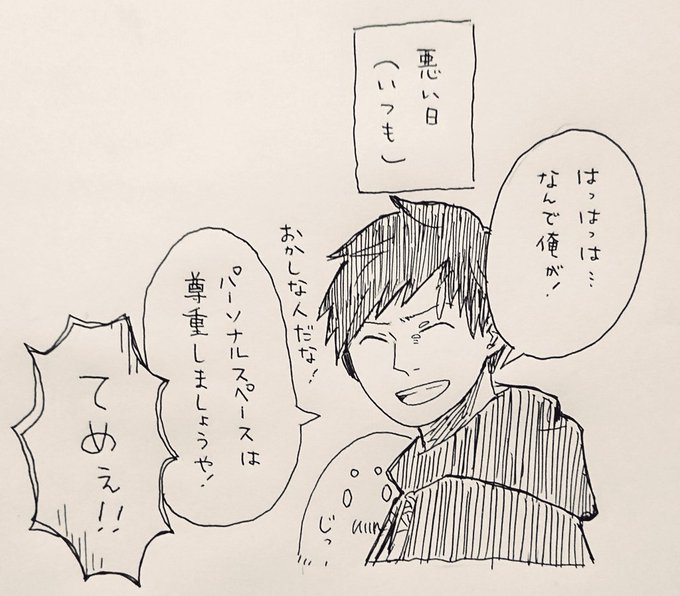 悪い日
(いつも)
はっはっは…
なんで俺が!
おかしな人だな!
パーソナルスペースは
尊重しましょうや!
てめぇ!!
じっ